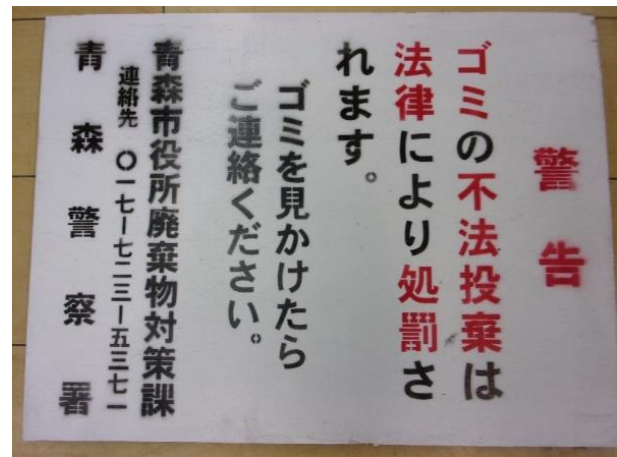 警告
ゴミの不法投棄は
法律により処罰さ
れます。
ゴミを見かけたら
ご連絡ください。
青森市役所廃棄物対策課
連絡先 〇一七ー七二三ー五三七一
青森警察署